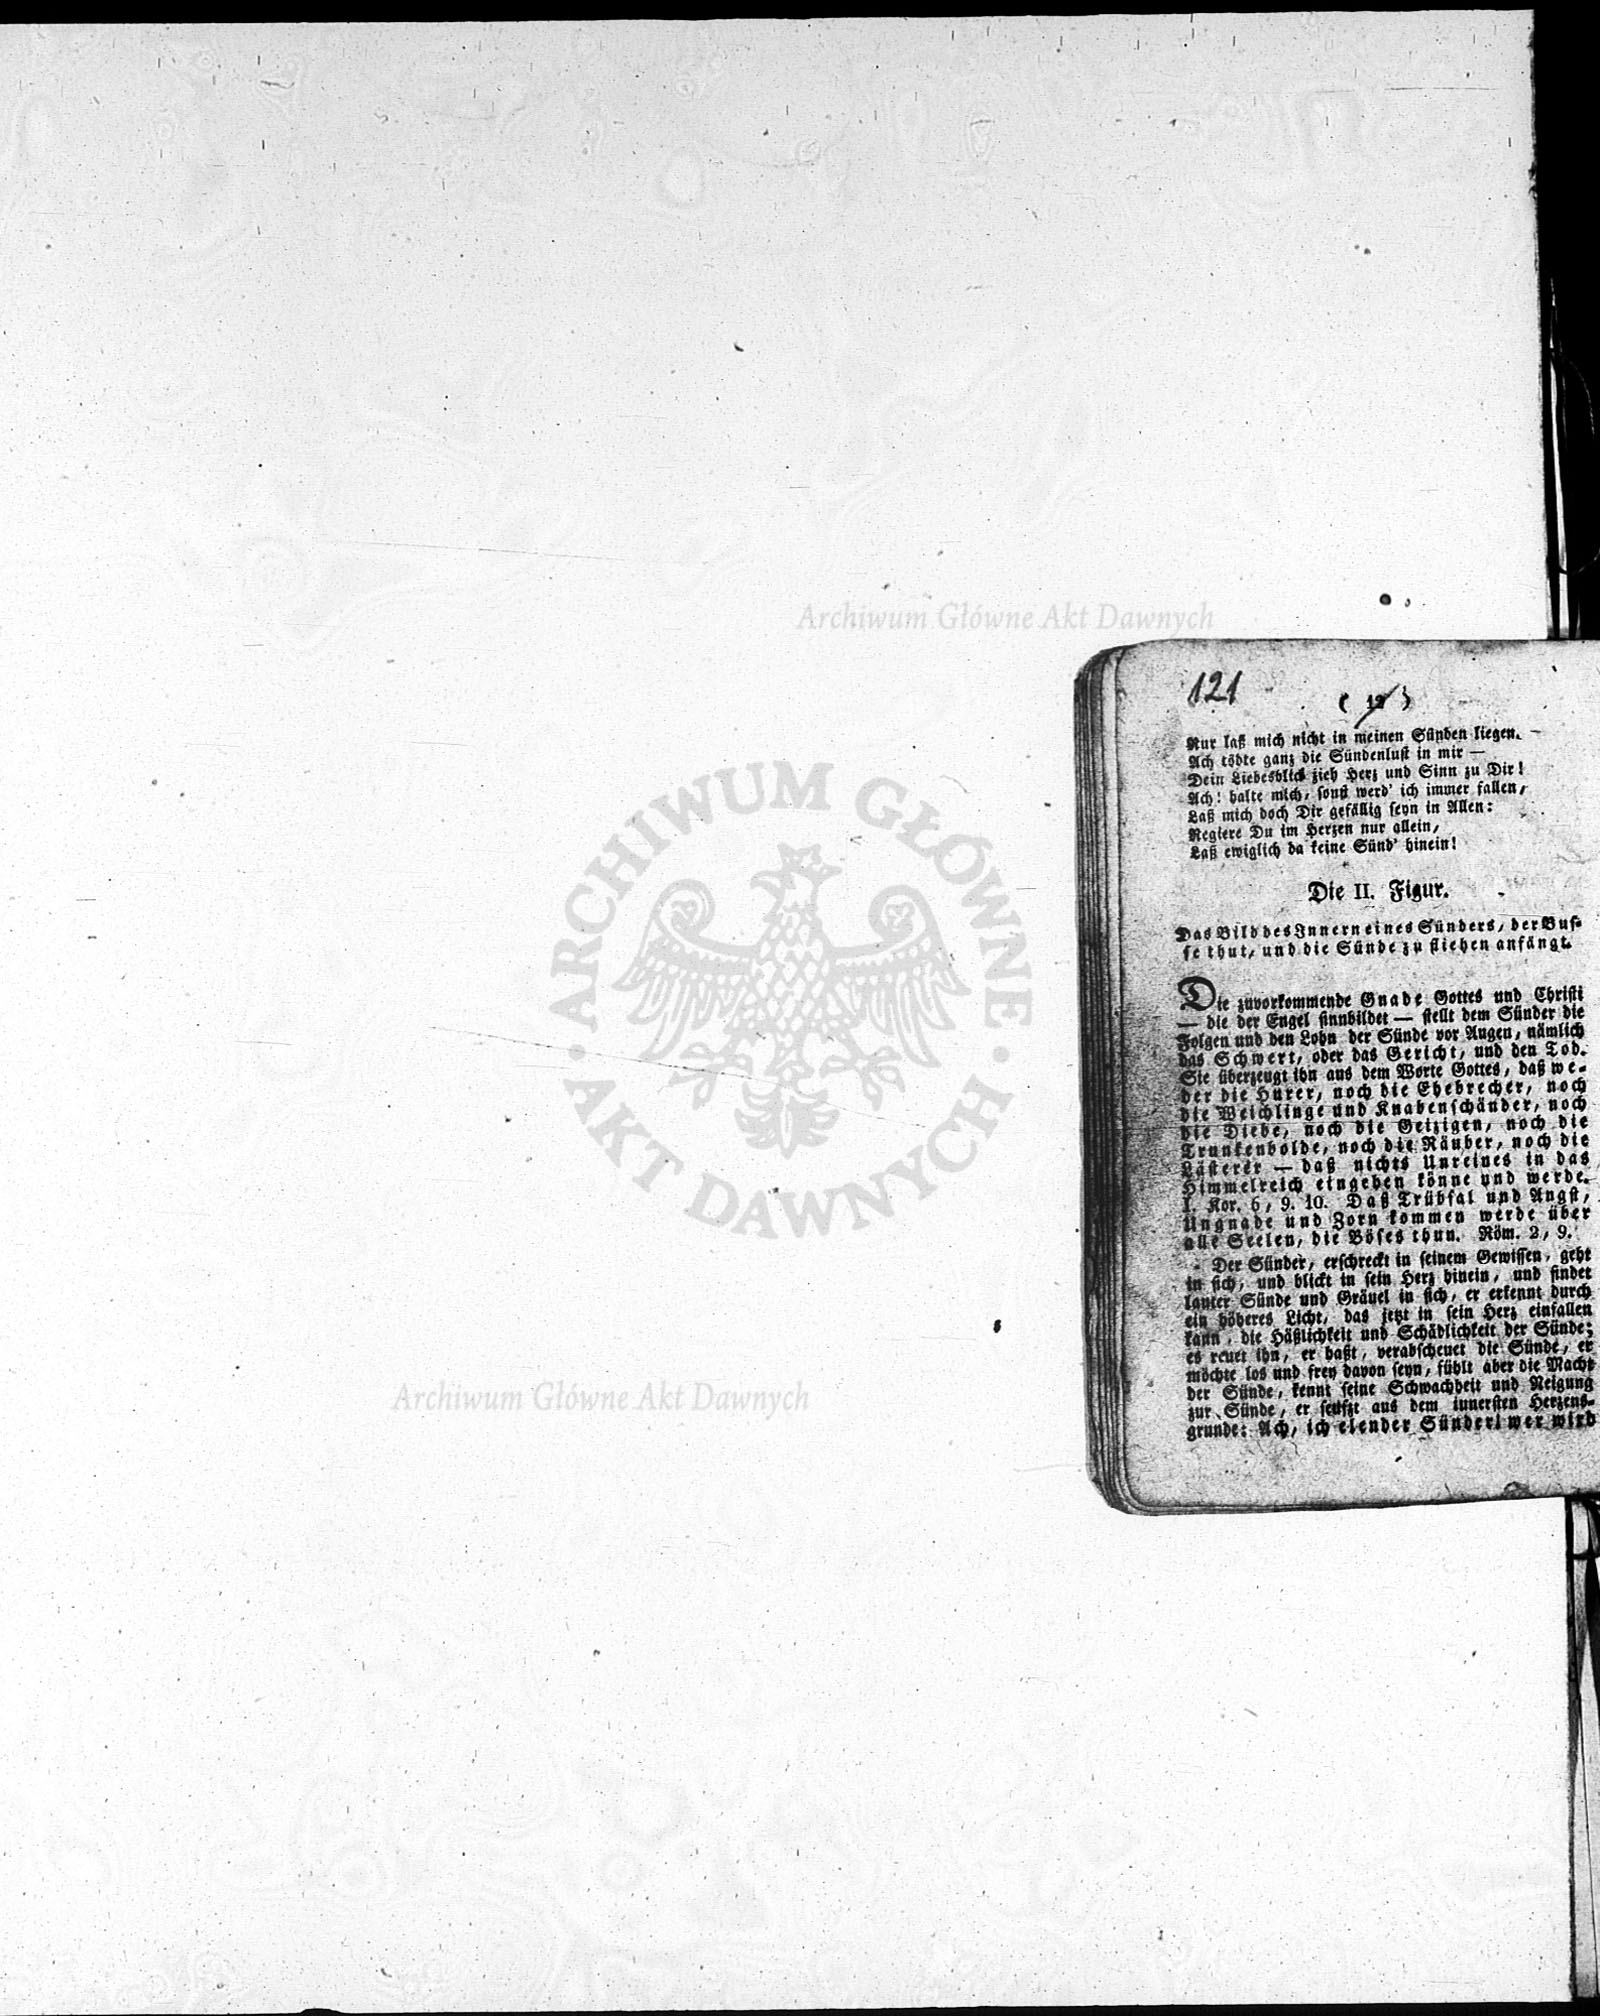 Archiwum Główne Akt Dawnych
ARCHIWUM GŁÓWNE
• AKT DAWNYCH •
Archiwum Główne Akt Dawnych
121
( 12 )
Nur laß mich nicht in meinen Sünden liegen. —
Ach tödte ganz die Sündenlust in mir —
Dein Liebesblick zieh Herz und Sinn zu Dir!
Ach! halte mich, sonst werd' ich immer fallen,
Laß mich doch Dir gefällig seyn in Allen:
Regiere Du im Herzen nur allein,
Laß ewiglich da keine Sünd' hinein!
Die II. Figur.
Das Bild des Innern eines Sünders, der Bus-
se thut, und die Sünde zu fliehen anfängt.
Die zuvorkommende Gnade Gottes und Christi
— die der Engel sinnbildet — stellt dem Sünder die
Folgen und den Lohn der Sünde vor Augen, nämlich
das Schwert, oder das Gericht, und den Tod.
Sie überzeugt ihn aus dem Worte Gottes, daß we-
der die Hurer, noch die Ehebrecher, noch
die Weichlinge und Knabenschänder, noch
die Diebe, noch die Geizigen, noch die
Trunkenbolde, noch die Räuber, noch die
Lästerer — daß nichts Unreines in das
Himmelreich eingehen könne und werde.
I. Kor. 6, 9. 10. Daß Trübsal und Angst,
Ungnade und Zorn kommen werde über
alle Seelen, die Böses thun. Röm. 2, 9.
Der Sünder, erschreckt in seinem Gewissen, geht
in sich, und blickt in sein Herz hinein, und findet
lauter Sünde und Gräuel in sich, er erkennt durch
ein höheres Licht, das jetzt in sein Herz einfallen
kann, die Häßlichkeit und Schädlichkeit der Sünde;
es reuet ihn, er haßt, verabscheuet die Sünde, er
möchte los und frey davon seyn, fühlt aber die Macht
der Sünde, kennt seine Schwachheit und Neigung
zur Sünde, er seufzt aus dem innersten Herzens-
grunde: Ach, ich elender Sünder! wer wird